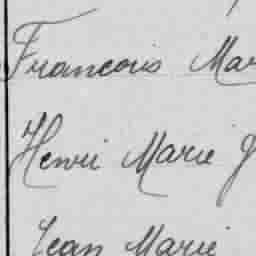 Francois Mar
Henri Marie J
Jean Marie